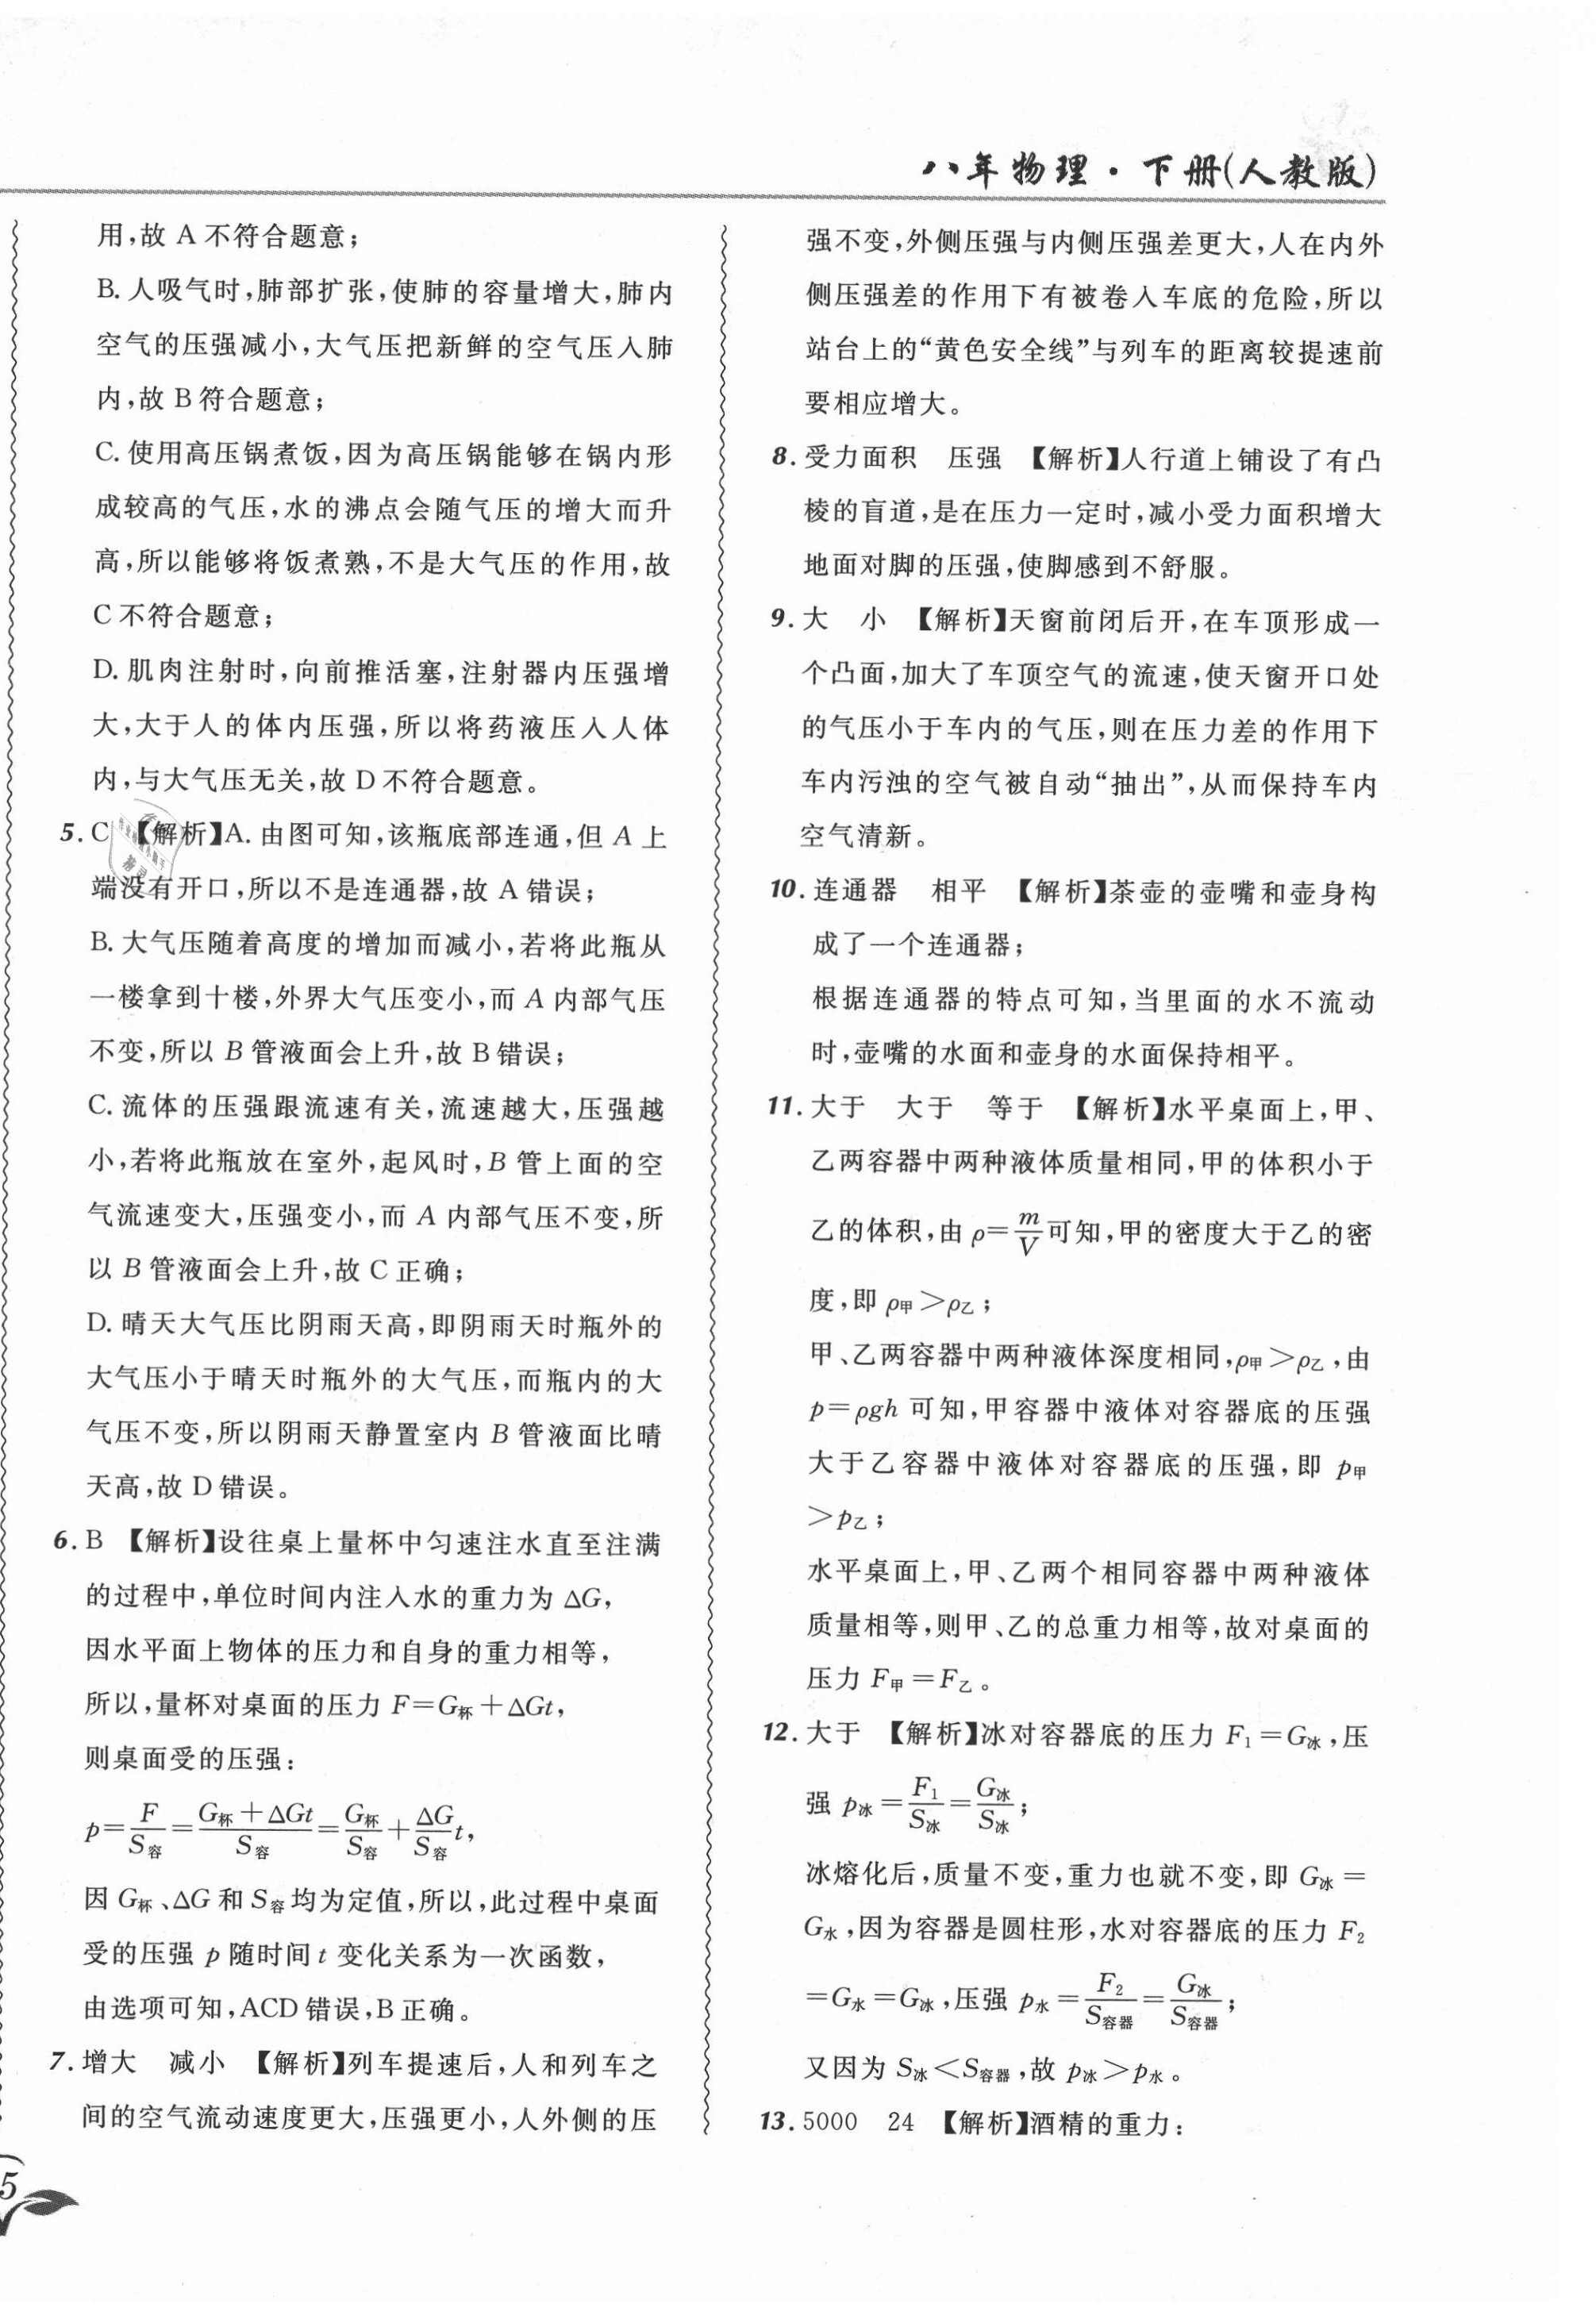 八年物理·下册(人教版)
用,故 A 不符合题意;
B. 人吸气时,肺部扩张,使肺的容量增大,肺内
空气的压强减小,大气压把新鲜的空气压入肺
内,故 B 符合题意;
C. 使用高压锅煮饭,因为高压锅能够在锅内形
成较高的气压,水的沸点会随气压的增大而升
高,所以能够将饭煮熟,不是大气压的作用,故
C 不符合题意;
D. 肌肉注射时,向前推活塞,注射器内压强增
大,大于人的体内压强,所以将药液压入人体
内,与大气压无关,故 D 不符合题意。
5. C 【解析】A. 由图可知,该瓶底部连通,但 A 上
端没有开口,所以不是连通器,故 A 错误;
B. 大气压随着高度的增加而减小,若将此瓶从
一楼拿到十楼,外界大气压变小,而 A 内部气压
不变,所以 B 管液面会上升,故 B 错误;
C. 流体的压强跟流速有关,流速越大,压强越
小,若将此瓶放在室外,起风时,B 管上面的空
气流速变大,压强变小,而 A 内部气压不变,所
以 B 管液面会上升,故 C 正确;
D. 晴天大气压比阴雨天高,即阴雨天时瓶外的
大气压小于晴天时瓶外的大气压,而瓶内的大
气压不变,所以阴雨天静置室内 B 管液面比晴
天高,故 D 错误。
6. B 【解析】设往桌上量杯中匀速注水直至注满
的过程中,单位时间内注入水的重力为 ΔG,
因水平面上物体的压力和自身的重力相等,
所以,量杯对桌面的压力 F=G杯+ΔGt,
则桌面受的压强:
p=F/S容=(G杯+ΔGt)/S容=G杯/S容+ΔG/S容 t,
因 G杯、ΔG 和 S容 均为定值,所以,此过程中桌面
受的压强 p 随时间 t 变化关系为一次函数,
由选项可知,ACD 错误,B 正确。
7. 增大　减小 【解析】列车提速后,人和列车之
间的空气流动速度更大,压强更小,人外侧的压
5
强不变,外侧压强与内侧压强差更大,人在内外
侧压强差的作用下有被卷入车底的危险,所以
站台上的“黄色安全线”与列车的距离较提速前
要相应增大。
8. 受力面积　压强 【解析】人行道上铺设了有凸
棱的盲道,是在压力一定时,减小受力面积增大
地面对脚的压强,使脚感到不舒服。
9. 大　小 【解析】天窗前闭后开,在车顶形成一
个凸面,加大了车顶空气的流速,使天窗开口处
的气压小于车内的气压,则在压力差的作用下
车内污浊的空气被自动“抽出”,从而保持车内
空气清新。
10. 连通器　相平 【解析】茶壶的壶嘴和壶身构
成了一个连通器;
根据连通器的特点可知,当里面的水不流动
时,壶嘴的水面和壶身的水面保持相平。
11. 大于　大于　等于 【解析】水平桌面上,甲、
乙两容器中两种液体质量相同,甲的体积小于
乙的体积,由 ρ=m/V可知,甲的密度大于乙的密
度,即 ρ甲>ρ乙;
甲、乙两容器中两种液体深度相同,ρ甲>ρ乙,由
p=ρgh 可知,甲容器中液体对容器底的压强
大于乙容器中液体对容器底的压强,即 p甲
>p乙;
水平桌面上,甲、乙两个相同容器中两种液体
质量相等,则甲、乙的总重力相等,故对桌面的
压力 F甲=F乙。
12. 大于 【解析】冰对容器底的压力 F₁=G冰,压
强 p冰=F₁/S冰=G冰/S冰;
冰熔化后,质量不变,重力也就不变,即 G冰=
G水,因为容器是圆柱形,水对容器底的压力 F₂
=G水=G冰,压强 p水=F₂/S容器=G冰/S容器;
又因为 S冰<S容器,故 p冰>p水。
13. 5000　24 【解析】酒精的重力: